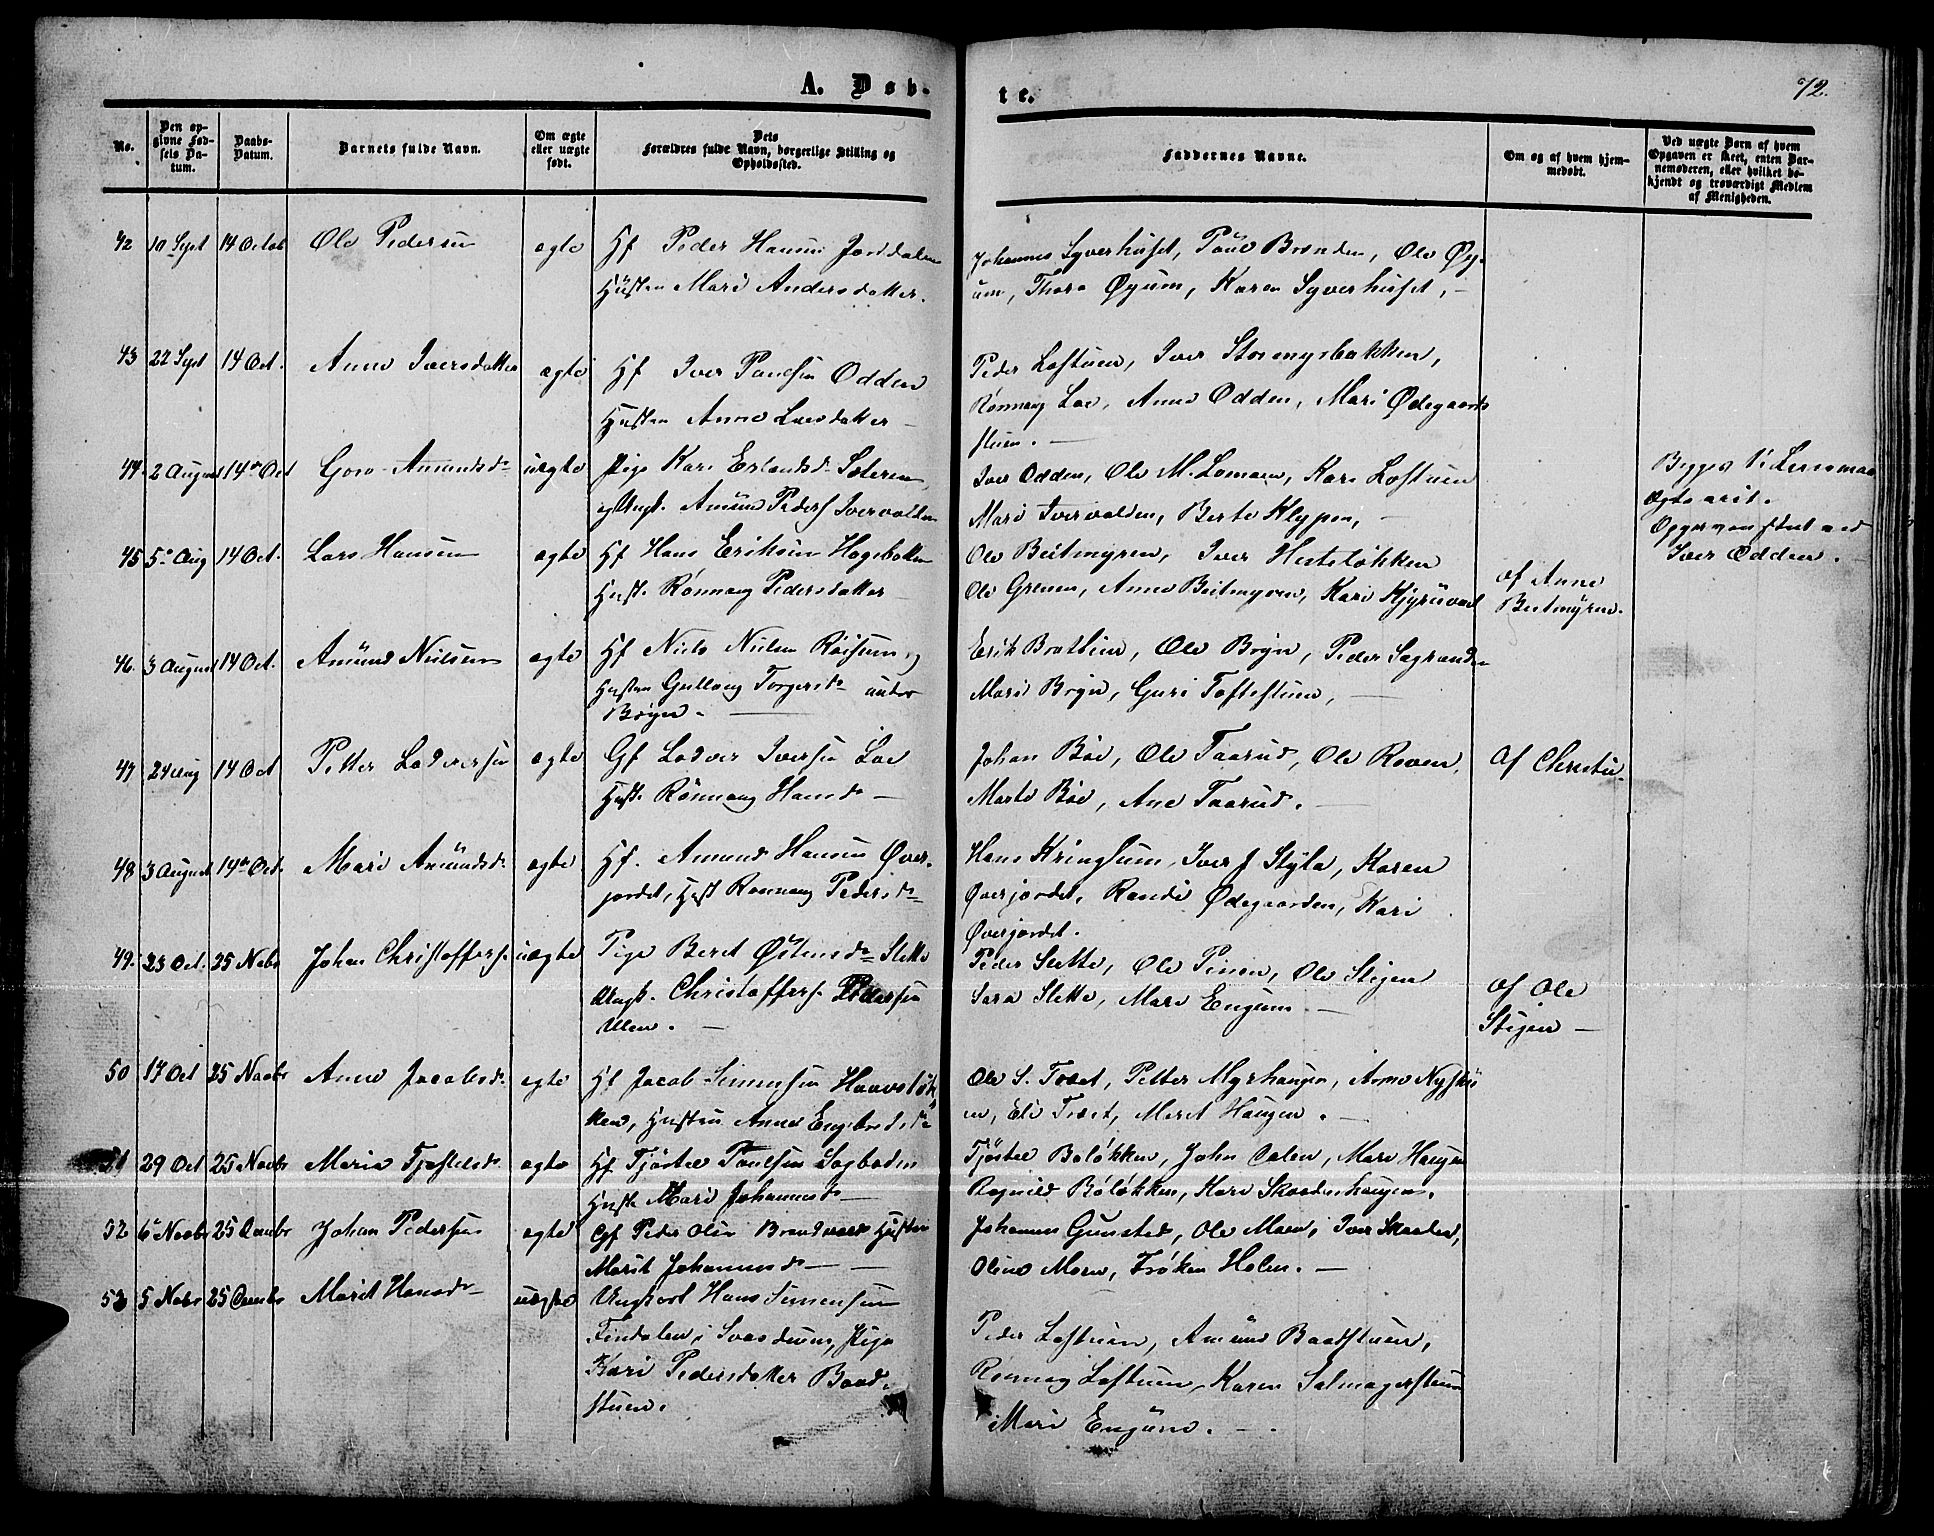 A. Døb-
te.
72.
No.
Den op-
givne Fød-
sels Da-
tum.
Daabs-
Datum.
Barnets fulde Navn.
Om ægte
eller uægte
født.
Dets
Forældres fulde Navn, borgerlige Stilling og
Opholdssted.
Faddernes Navne.
Om og af hvem hjem-
medøbt.
Ved uægte Børn af hvem
Opgaven er skeet, enten Bar-
nemoderen, eller hvilket be-
kjendt og troværdigt Medlem
af Menigheden.
42 19 Sept 14 Octob Ole Pedersen ægte Hf Peder Hansen Jordalen
Husten Mari Andersdatter.
Johannes Syverhuset, Poul Brenden, Ole Øy-
um, Thora Øyum, Karen Syverhuset, -
43 22 Sept 14 Oct. Anne Iversdatter ægte Hf Iver Paulsen Odden
Husten Anne Larsdatter -
Peder Loftuen, Iver Stormyrbakken,
Rønnaug Loe, Anne Odden, Mari Ødegaards
stuen. -
44. 2 August 14de Oct Goro Amundsd. uægte Pige Kari Erlandsd. Sæteren
og Ungk. Amund Peders. Ivervolden
Iver Odden, Ole M. Lomoen, Kari Loftuen
Mari Ivervolden, Berte Klypen, -
Begges 1ste Leiermaal
Iver Odden. -
45 5. Aug 14 Oct. Lars Hansen ægte Hf Hans Eriksen Hagebakken
Hust. Rønnaug Pedersdatter -
Ole Beitmyren, Iver Hesteløkken
Ole Grenen, Anne Beitmyren, Kari
af Anne
Beitmyren.
46. 3 August 14 Oct. Amund Nielsen ægte Hf Niels Nielsen
Husten Gullaug Torgersd. under
Bøyn. -
Erik Brattlien, Ole Bryn, Peder
Mari Bryn, Guri Toftestuen, -
47 24 Aug 14 Oct Petter Lodversen ægte Gf Lodver Iversen Loe
Hust. Rønnaug Hansd. -
Johan Bøe, Ole Taarud, Ole Roven,
Marte Bøe, Ane Taarud. -
Af Christie
48 3 August 14de Oct. Mari Amundsd. ægte Hf. Amund Hansen Øver-
jordet, Hust Rønnaug Pedersd.
Hans Kringlum, Iver J Stylo, Karen
Øverjordet, Randi Ødegaarden, Kari
Øverjordet.
49. 23 Oct. 25 Nobr Johan Christoffers. uægte Pige Beret Østensd. Slette
Ungk. Christoffers Pedersen
Ulen. -
Peder Slette, Ole Ole Stigen
Sara Slette, Mari Engum -
af Ole
Stigen -
50 17 Oct 25 Novbr Anne Jacobsd. ægte Hf Jacob Simensen Haavsløk-
ken, Husten Anne Engebretsd.
Ole S. Træet, Petter Myrhaugen, Anne Nystu
en, Eli Træet, Marit Haugen. -
51 29 Oct 25 Novbr Maria Tjøstelsd. ægte Hf Tjøstel Poulsen
Hust. Mari Johannesd. -
Tjøstel Boløkken, John Dalen, Mari Haugen
Ragnild Boløkken, Kari Skaadenhaugen.
52 6te Novbr 25 Johan Pedersen ægte Gf Peder Olsen Husten
Marit Johannesd. -
Johannes Gunstad, Ole Moen, Iver
Oline Moen, Frøken Holen. -
53 5 Nobr 25 Marit Hansd. uægte Ungkarl Hans Simensen
Findalen i Svatsum, Pige
Kari Pedersdatter Baad-
stuen.
Peder Loftuen, Amund Baadstuen,
Rønnaug Loftuen, Karen
Mari Engum. -